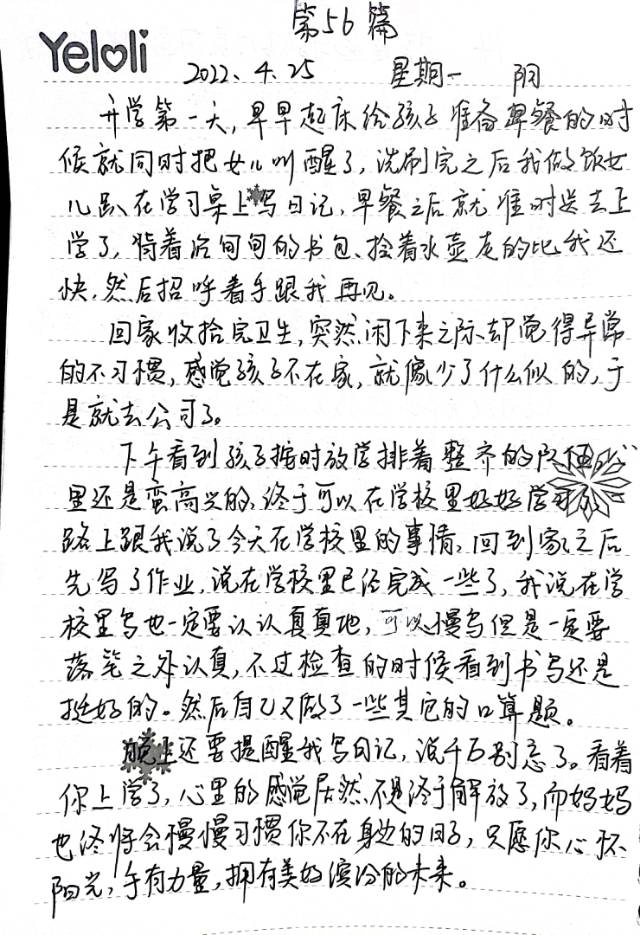 第56篇
Yeloli
2022.4.25 星期一 阴
开学第一天,早早起床给孩子准备早餐的时
候就同时把女儿叫醒了,洗刷完之后我做饭女
儿趴在学习桌上写日记,早餐之后就准时送去上
学了,背着沉甸甸的书包、拎着水壶走的比我还
快,然后招呼着手跟我再见。
回家收拾完卫生,突然闲下来之际却觉得异常
的不习惯,感觉孩子不在家,就像少了什么似的,于
是就去公司了。
下午看到孩子按时放学排着整齐的队伍心
里还是蛮高兴的,终于可以在学校里好好学习了
路上跟我说了今天在学校里的事情,回到家之后
先写了作业,说在学校里已经完成一些了,我说在学
校里写也一定要认认真真地,可以慢写但是一定要
落笔之处认真,不过检查的时候看到书写还是
挺好的。然后自己又做了一些其它的口算题。
晚上还要提醒我写日记,说千万别忘了。看着
你上学了,心里的感觉居然不是终于解放了,而妈妈
也终将会慢慢习惯你不在身边的日子,只愿你心怀
阳光,手有力量,拥有美好缤纷的未来。